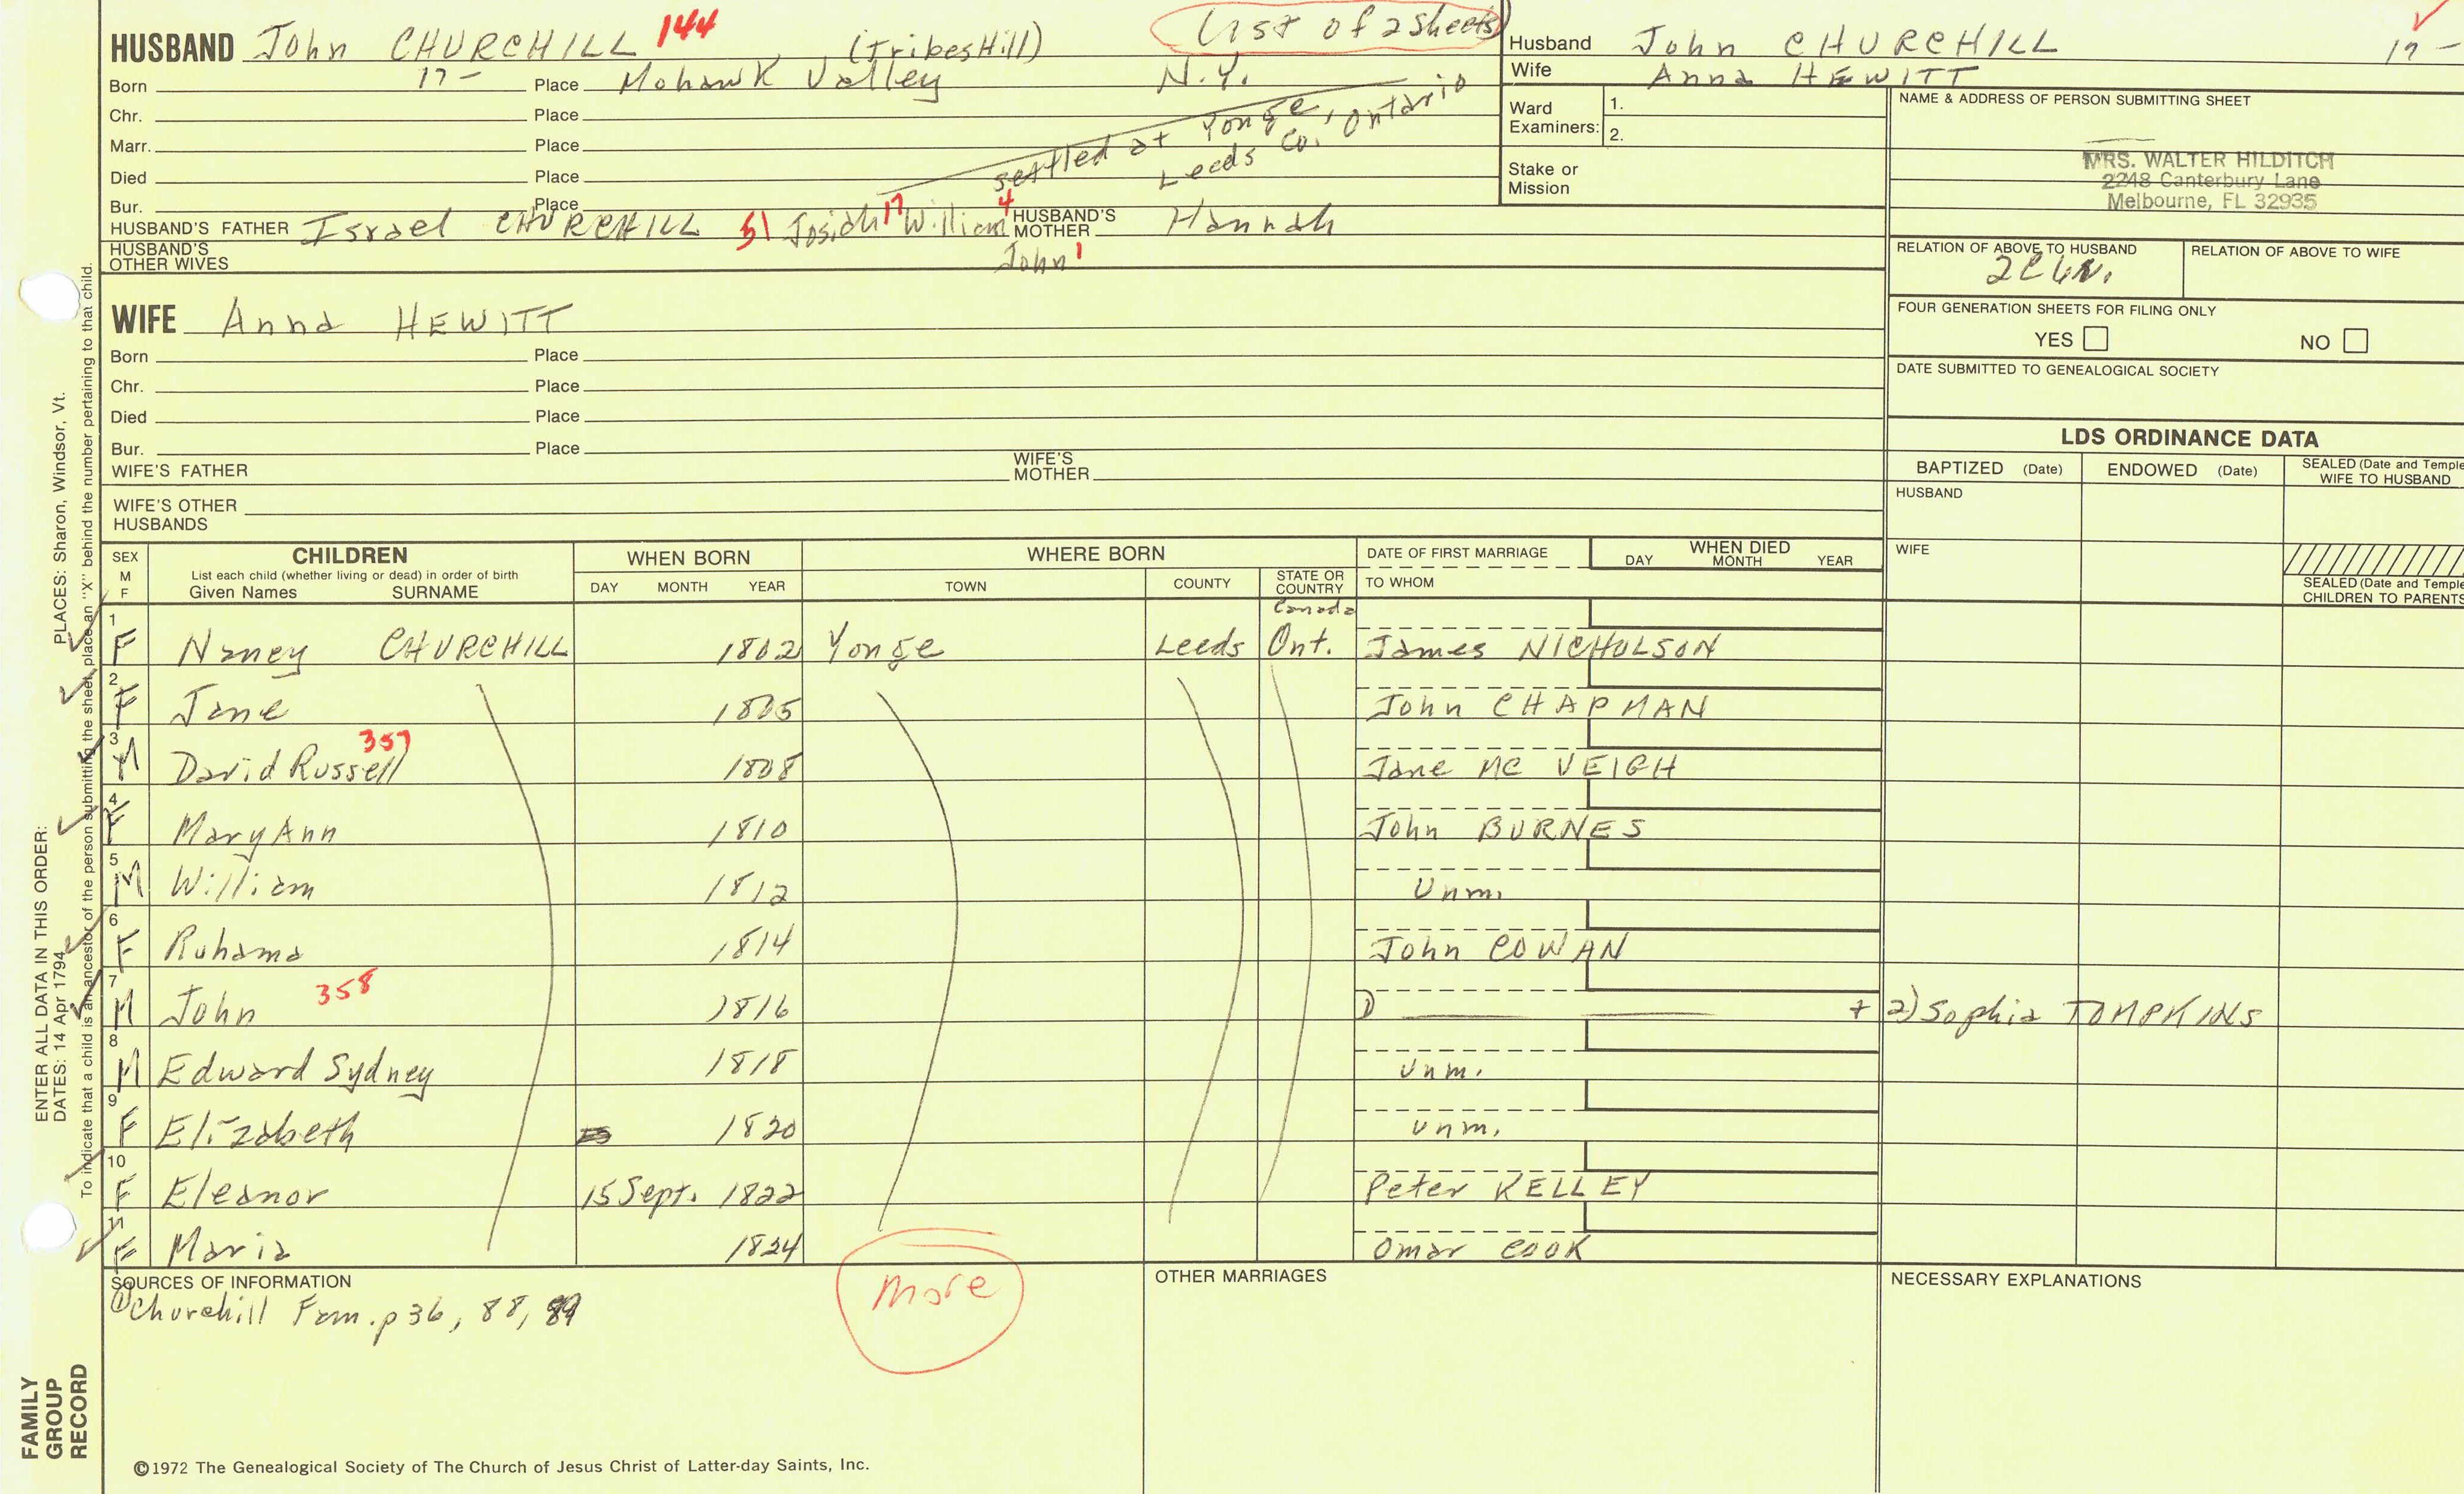 HUSBAND John CHURCHILL 144 (Tribes Hill)
Born 17- Place Mohawk Valley N.Y.
Chr. Place
Marr. Place
Died Place
settled at Yonge, Ontario
Leeds Co.
Bur. Place
HUSBAND'S FATHER Israel CHURCHILL 51 Josiah 17 William 4 HUSBAND'S MOTHER Hannah
John 1
HUSBAND'S OTHER WIVES
of 2 sheets
Husband John CHURCHILL 17-
Wife Anna HEWITT
Ward Examiners: 1.
2.
Stake or Mission
NAME & ADDRESS OF PERSON SUBMITTING SHEET
MRS. WALTER HILDITCH
2248 Canterbury Lane
Melbourne, FL 32935
RELATION OF ABOVE TO HUSBAND
RELATION OF ABOVE TO WIFE
FOUR GENERATION SHEETS FOR FILING ONLY
YES NO
DATE SUBMITTED TO GENEALOGICAL SOCIETY
WIFE Anna HEWITT
Born Place
Chr. Place
Died Place
Bur. Place
WIFE'S FATHER WIFE'S MOTHER
WIFE'S OTHER HUSBANDS
LDS ORDINANCE DATA
BAPTIZED (Date) ENDOWED (Date) SEALED (Date and Temple
WIFE TO HUSBAND
HUSBAND
WIFE
SEALED (Date and Temple
CHILDREN TO PARENTS
SEX M F
CHILDREN
List each child (whether living or dead) in order of birth
Given Names SURNAME
WHEN BORN
DAY MONTH YEAR
WHERE BORN
TOWN COUNTY STATE OR COUNTRY
DATE OF FIRST MARRIAGE
TO WHOM
WHEN DIED
DAY MONTH YEAR
Canada
1 F Nancy CHURCHILL 1802 Yonge Leeds Ont. James NICHOLSON
2 F Jane 1805 John CHAPMAN
3 M David Russell 357 1808 Jane MC VEIGH
4 F Mary Ann 1810 John BURNES
5 M William 1812 Unm.
6 F Ruhama 1814 John COWAN
7 M John 358 1816 1) + 2) Sophia TOMPKINS
8 M Edward Sydney 1818 Unm.
9 F Elizabeth 1820 unm.
10 F Eleanor 15 Sept. 1822 Peter KELLEY
11 F Maria 1824 Omar COOK
SOURCES OF INFORMATION
① Churchill Fam. p 36, 88, 89
More
OTHER MARRIAGES
NECESSARY EXPLANATIONS
©1972 The Genealogical Society of The Church of Jesus Christ of Latter-day Saints, Inc.
FAMILY
GROUP
RECORD
ENTER ALL DATA IN THIS ORDER:
DATES: 14 Apr 1794 PLACES: Sharon, Windsor, Vt.
To indicate that a child is an ancestor of the person submitting the sheet, place an "X" behind the number pertaining to that child.